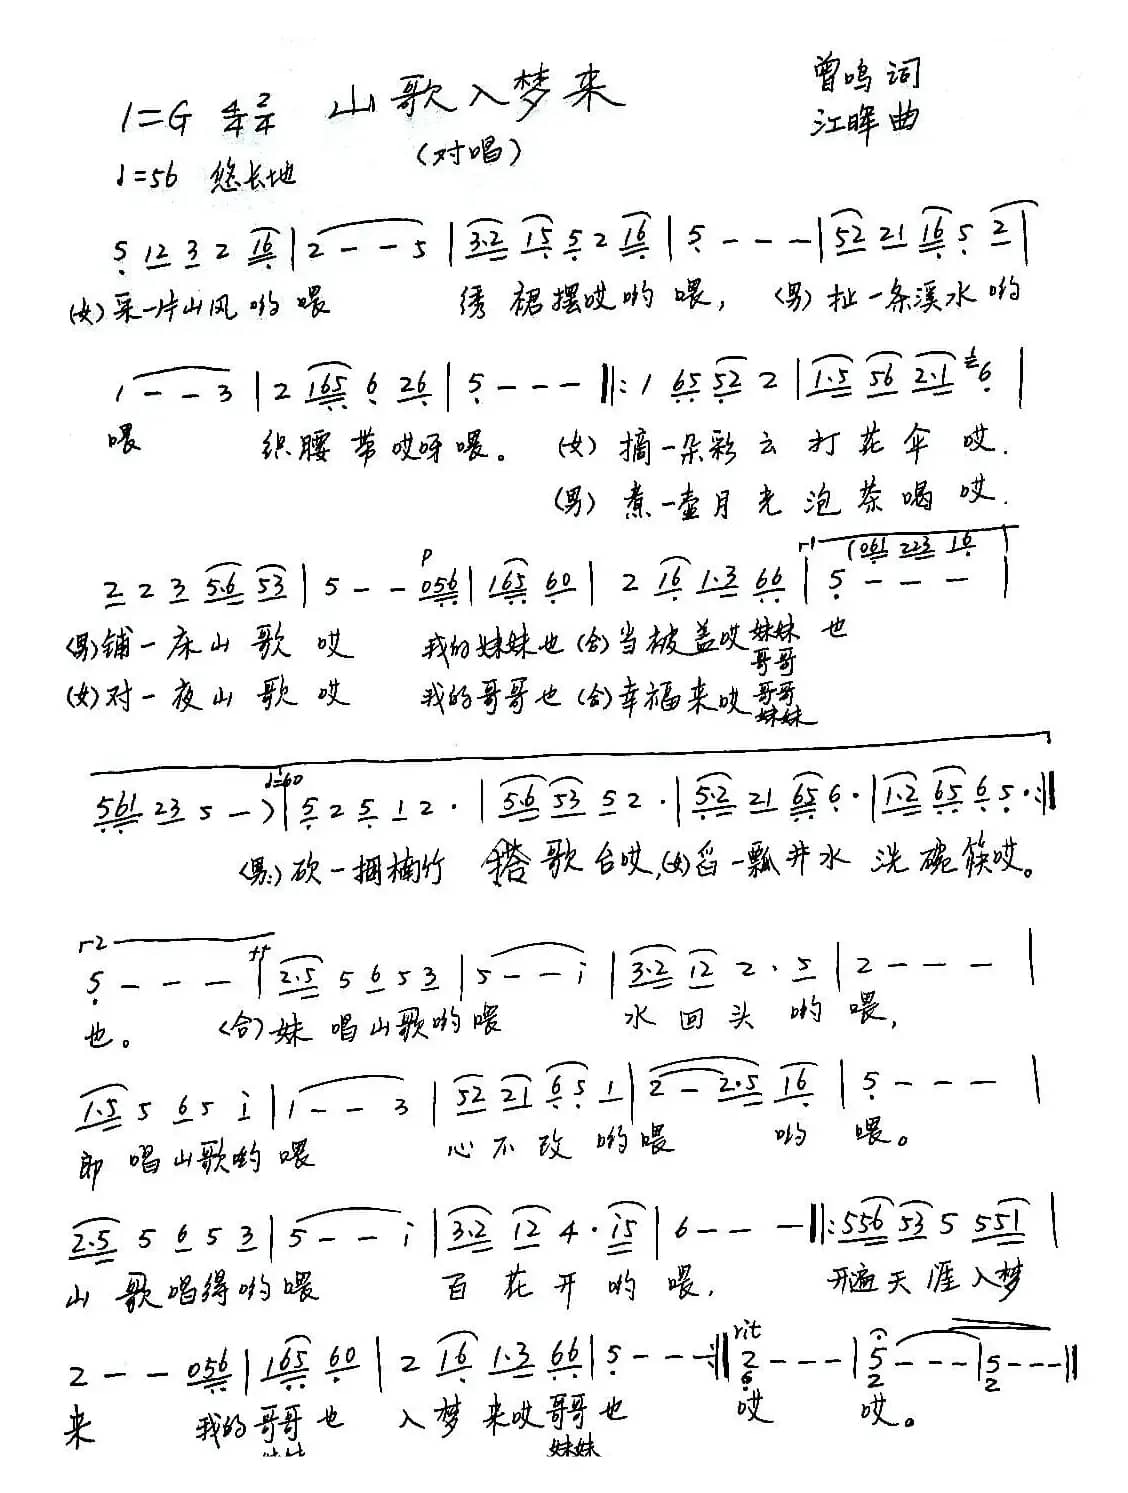 山歌入梦来
曾鸣 词
1=G 4/4 2/4
(对唱)
江晖 曲
♩=56 悠长地
5 12 3 2 16 | 2 - - 5 | 3·2 15 5 2 16 | 5 - - - | 52 21 16 5 2 |
(女)采一片山风哟喂 绣裙摆哎哟喂, (男)扯一条溪水哟
1 - - 3 | 2 165 6 26 | 5 - - - ‖: 1 65 52 2 | 1·5 56 2·1 6 |
喂 织腰带哎呀喂。 (女)摘一朵彩云打花伞哎.
(男)煮一壶月光泡茶喝哎.
P r1 (061 223 16
2 2 3 5·6 53 | 5 - - 056 | 165 60 | 2 16 1·3 66 | 5 - - - |
(男)铺一床山歌哎 我的妹妹也(合)当被盖哎妹妹也
哥哥
(女)对一夜山歌哎 我的哥哥也(合)幸福来哎哥哥
妹妹
♩=60
561 23 5 - ) | 5 2 5 1 2 · | 5·6 53 5 2 · | 5·2 21 65 6 · | 1·2 65 6 5 · :‖
(男:)砍一捆楠竹 搭歌台哎,(女)舀一瓢井水洗碗筷哎。
r2
5 - - - ‖ 2·5 5 6 5 3 | 5 - - i | 3·2 12 2 · 5 | 2 - - - |
也。 (合)妹唱山歌哟喂 水回头哟喂,
1·5 5 65 i | 1 - - 3 | 52 21 65 1 | 2 - 2·5 16 | 5 - - - |
郎唱山歌哟喂 心不改哟喂 哟喂。
2·5 5 6 5 3 | 5 - - i | 3·2 12 4 · i5 | 6 - - - ‖: 556 53 5 551 |
山歌唱得哟喂 百花开哟喂, 开遍天涯入梦
rit
2 - - 056 | 165 60 | 2 16 1·3 66 | 5 - - - :‖ 2 - - - | 5 - - - | 5 - - - ‖
6 2 2
来 我的哥哥也 入梦来哎哥哥也 哎 哎。
妹妹